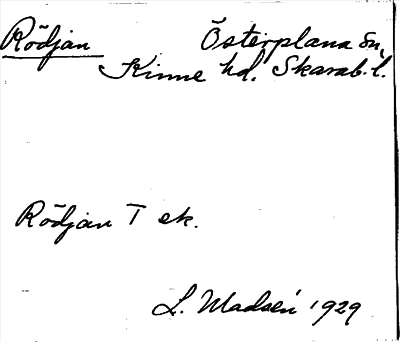 Rödjan Österplana sn,
Kinne hd. Skarab. l.
Rödjan T ek.
L. Madsén 1929